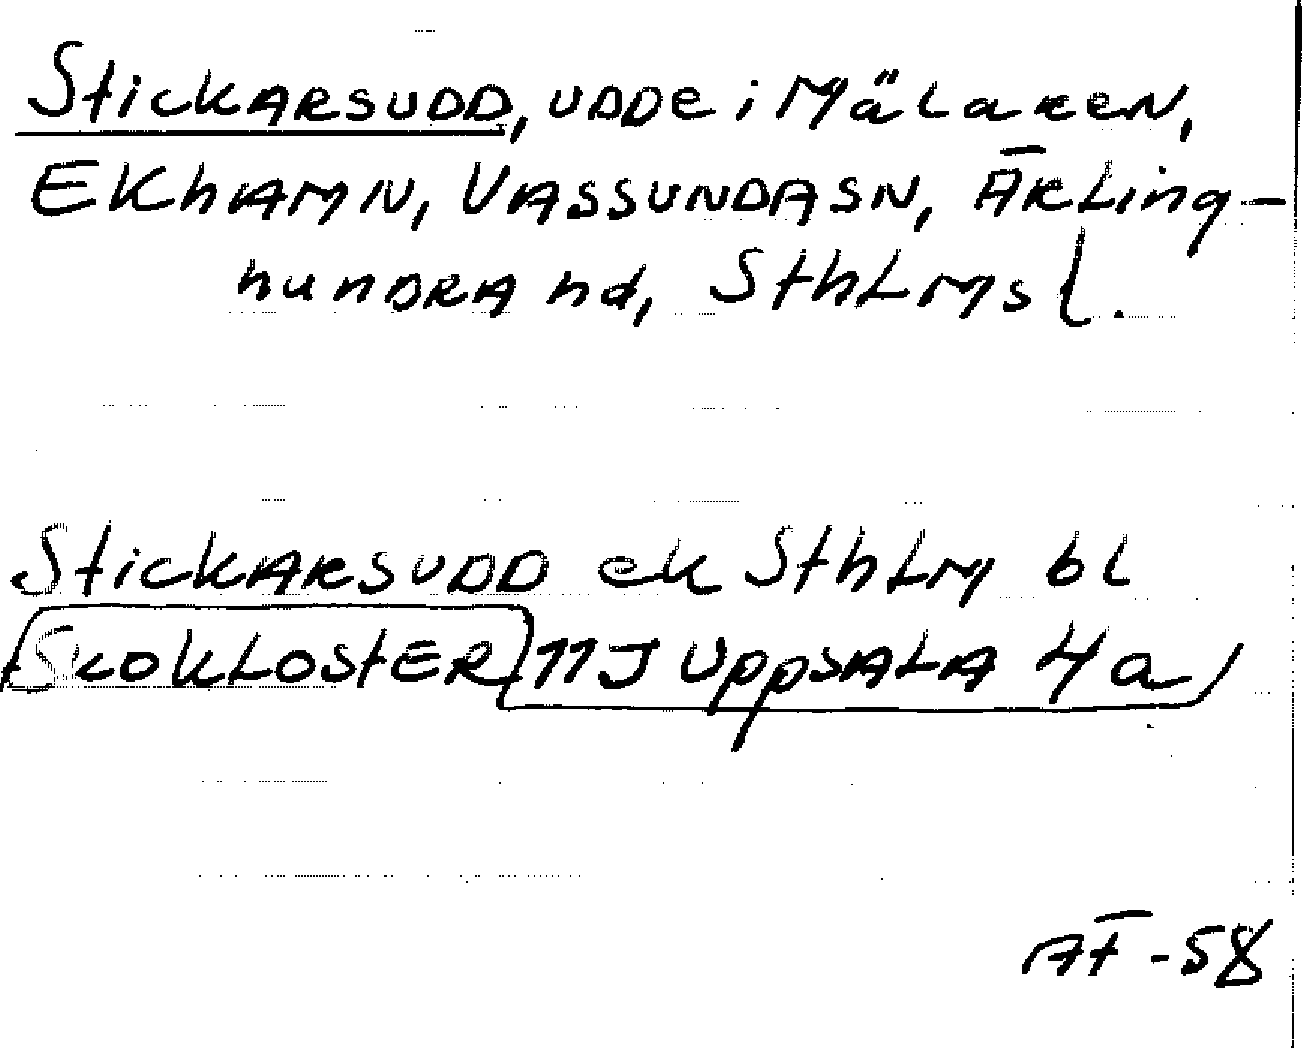 Stickarsudd, udde i Mälaren,
Ekhamn, Vassunda sn, Ärling-
hundra hd, Sthlms l.
Stickarsudd ek Sthlm bl
Skokloster 11J Uppsala 4a
AF-58